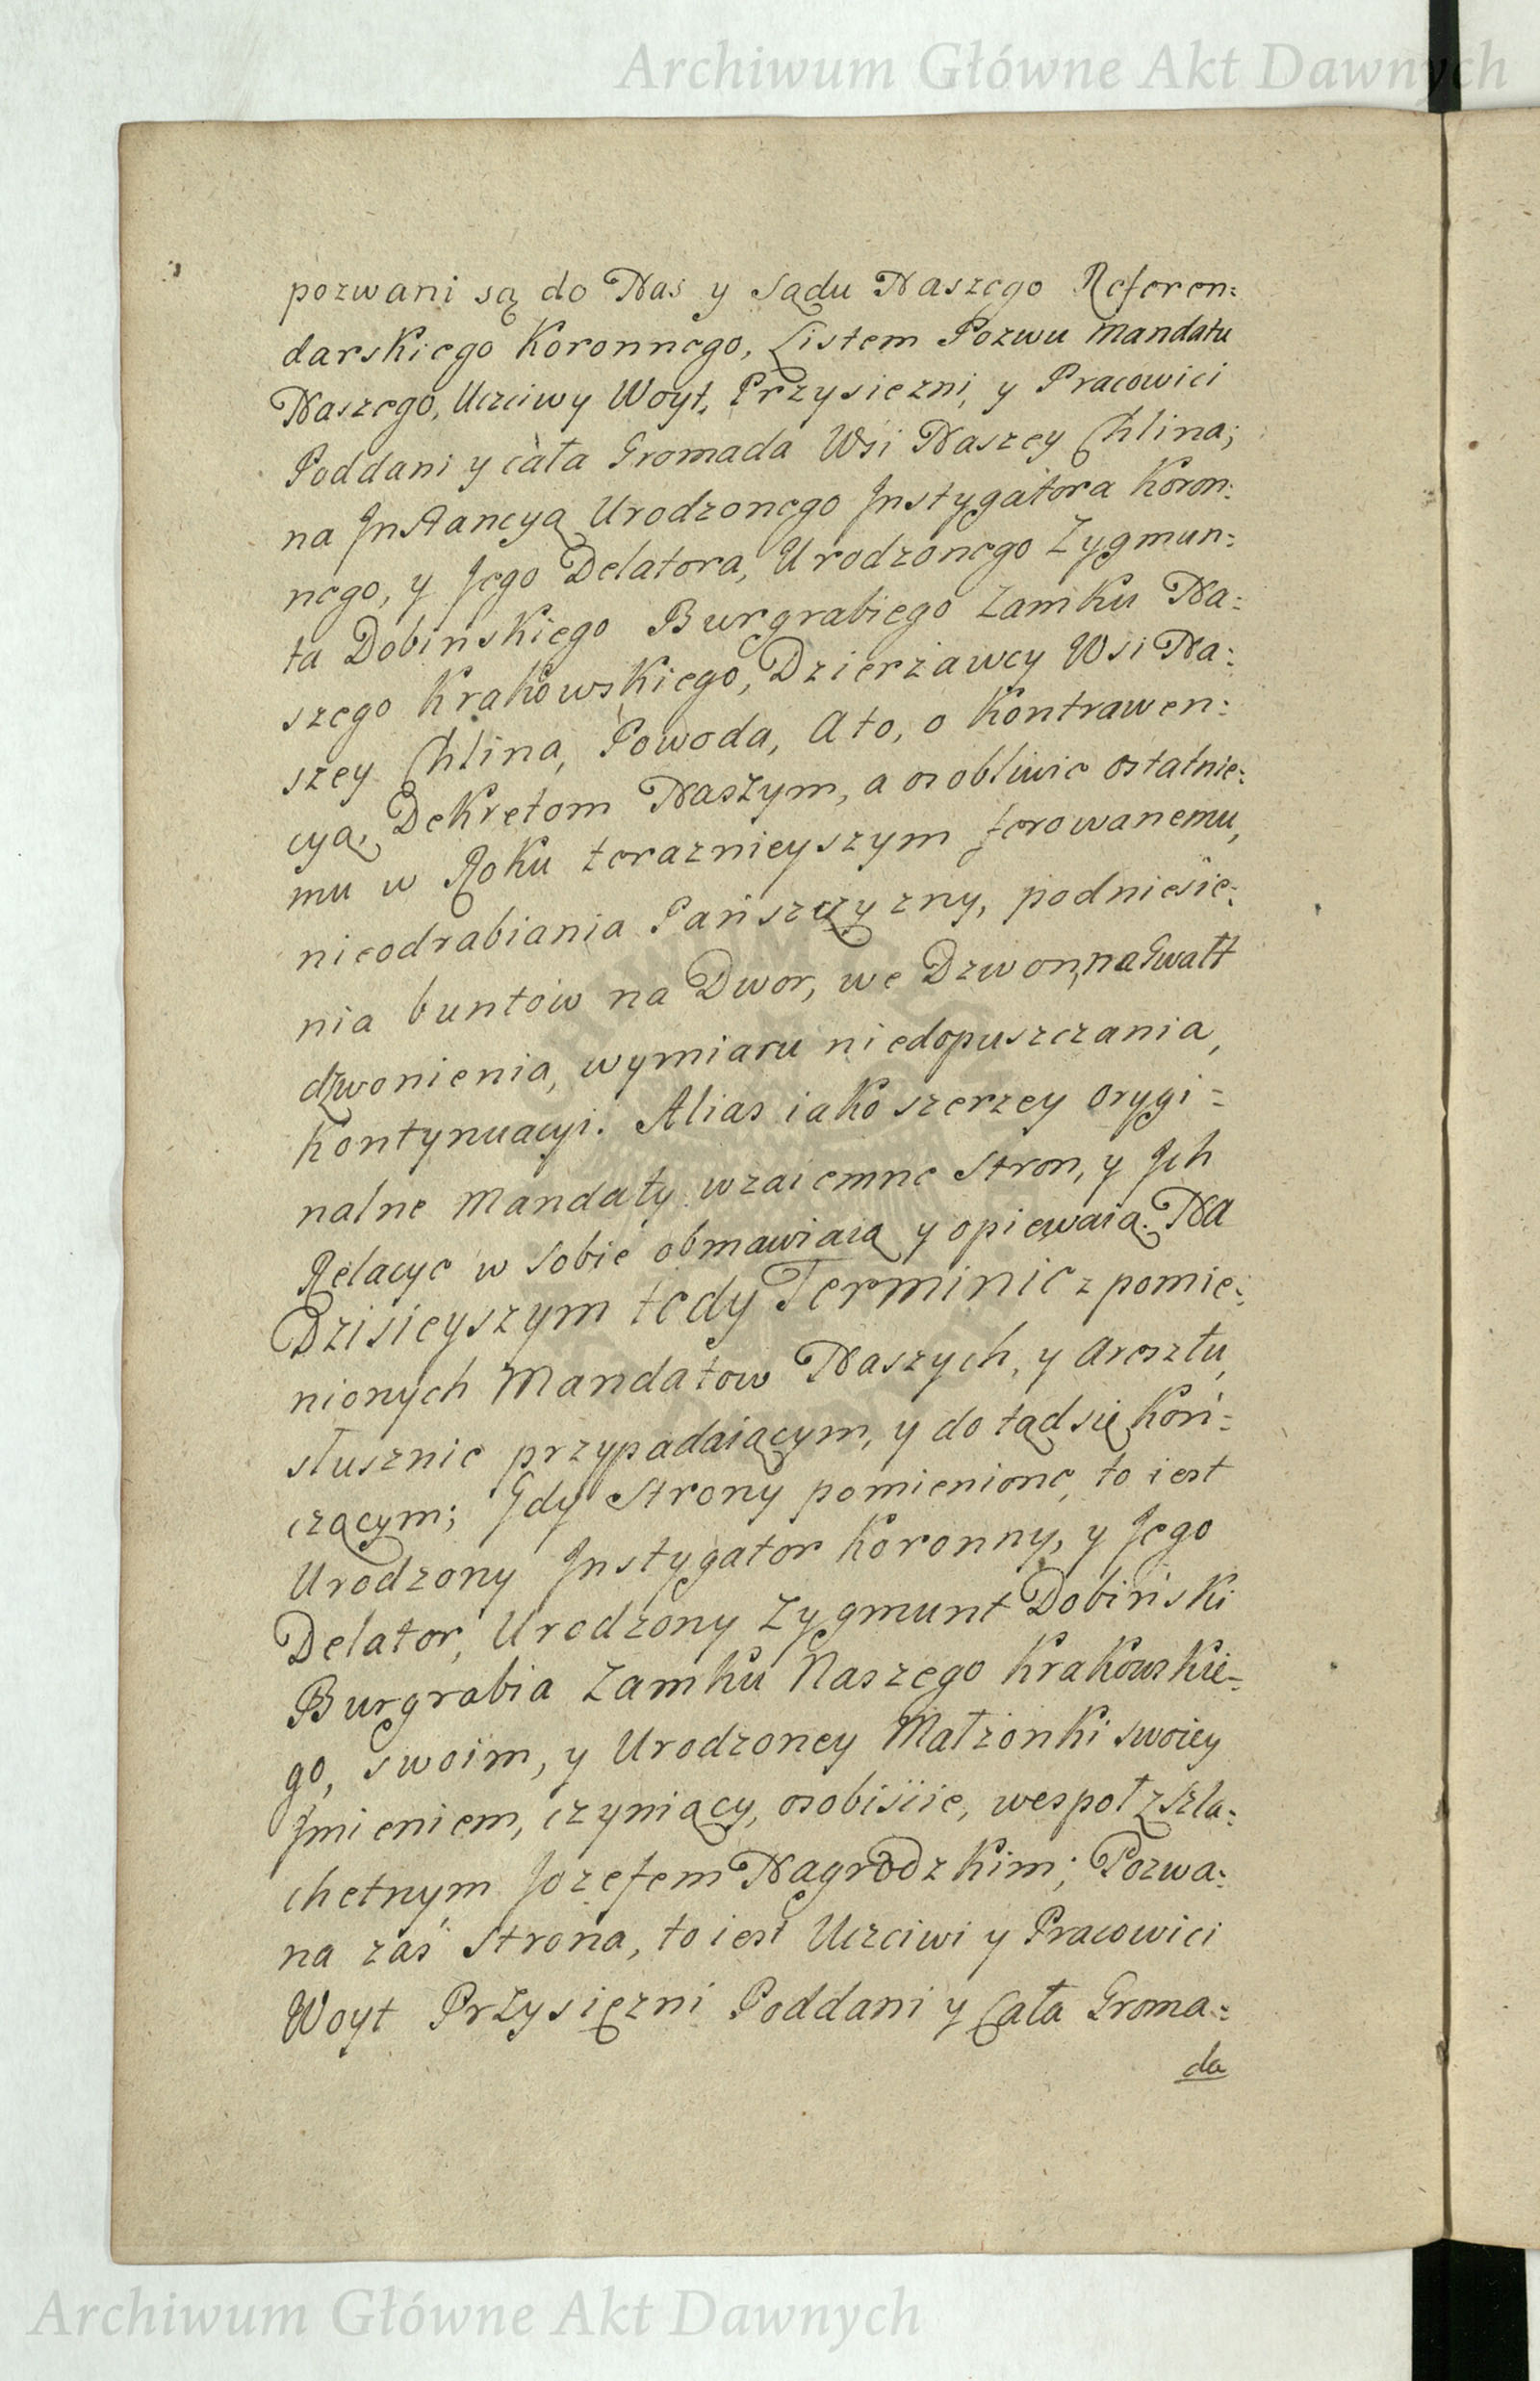 Archiwum Główne Akt Dawnych
pozwani są do Nas y Sądu Naszego Referen:
darskiego Koronnego, Listem Pozwu Mandatu
Naszego, Uczciwy Woyt, Przysiezni, y Pracowici
Poddani y cała Gromada Wsi Naszey Chlina;
na Jnstancyą Urodzonego Jnstygatora Koron:
nego, y Jego Delatora, Urodzonego Zygmun:
ta Dobinskiego Burgrabiego Zamku Na:
szego Krakowskiego, Dzierzawcy Wsi Na:
szey Chlina, Powoda, A to, o Kontrawen:
cyą, Dekretom Naszym, a osobliwie ostatnie:
mu w Roku terazniejszym ferowanemu,
nieodrabiania Pańszczyzny, podniesie:
nia buntow na Dwor, we Dzwon, na Gwałt
dzwonienia, wymiaru niedopuszczania,
Kontynuacyi. Alias iako szerzey orygi=
nalne Mandaty wzaiemne Stron, y Jch
Relacye w Sobie obmawiaią y opiewaią. Na
Dzisieyszym tedy Terminie z pomie:
nionych Mandatow Naszych, y Aresztu,
słusznie przypadaiącym, y do tąd się Koń=
czącym; Gdy Strony pomienione, to iest
Urodzony Jnstygator Koronny, y Jego
Delator, Urodzony Zygmunt Dobiński
Burgrabia Zamku Naszego Krakowskie=
go, swoim, y Urodzoney Małzonki swoiey
Jmieniem, czyniący, osobiscie, wespoł z Szla:
chetnym Jozefem Nagrodzkim; Pozwa:
na zaś Strona, to iest Uczciwi y Pracowici
Woyt Przysięzni Poddani y Cała Groma:
da
Archiwum Główne Akt Dawnych